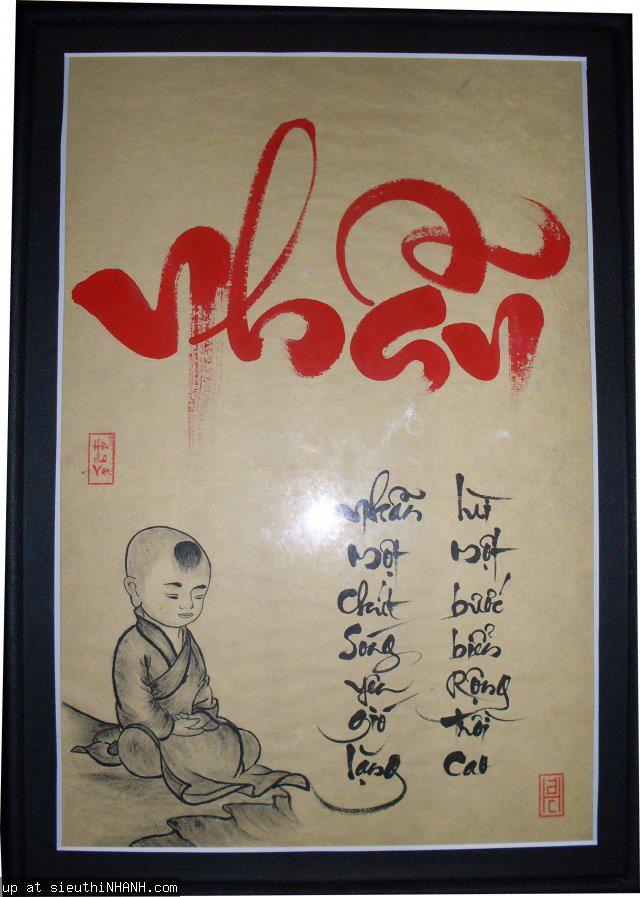 Nhẫn
nhẫn lùi
một một
chút bước
Sóng biển
yên Rộng
gió trời
lặng cao
up at sieuthiNHANH.com